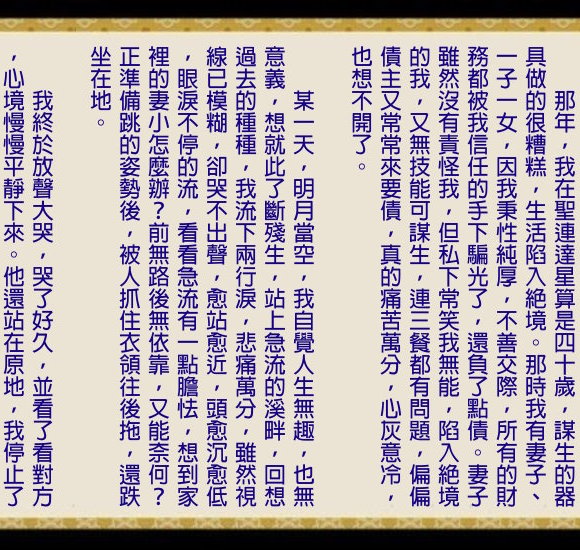 那年，我在聖連達星算是四十歲，謀生的器
具做的很糟糕，生活陷入絕境。那時我有妻子、
一子一女，因我秉性純厚，不善交際，所有的財
務都被我信任的手下騙光了，還負了點債。妻子
雖然沒有責怪我，但私下常笑我無能，陷入絕境
的我，又無技能可謀生，連三餐都有問題，偏偏
債主又常常來要債，真的痛苦萬分，心灰意冷，
也想不開了。
某一天，明月當空，我自覺人生無趣，也無
意義，想就此了斷殘生，站上急流的溪畔，回想
過去的種種，我流下兩行淚，悲痛萬分，雖然視
線已模糊，卻哭不出聲，愈站愈近，頭愈沉愈低
，眼淚不停的流，看看急流有一點膽怯，想到家
裡的妻小怎麼辦？前無路後無依靠，又能奈何？
正準備跳的姿勢後，被人抓住衣領往後拖，還跌
坐在地。
我終於放聲大哭，哭了好久，並看了看對方
，心境慢慢平靜下來。他還站在原地，我停止了